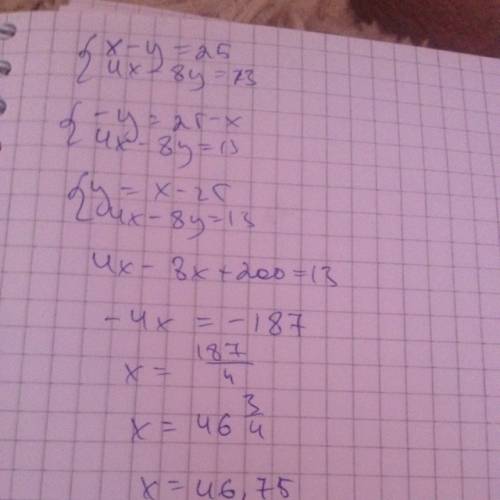 {x - y = 25
{4x - 8y = 13
{-y = 25 - x
{4x - 8y = 13
{y = x - 25
{4x - 8y = 13
4x - 8x + 200 = 13
-4x = -187
x = 187/4
x = 46 3/4
x = 46,75